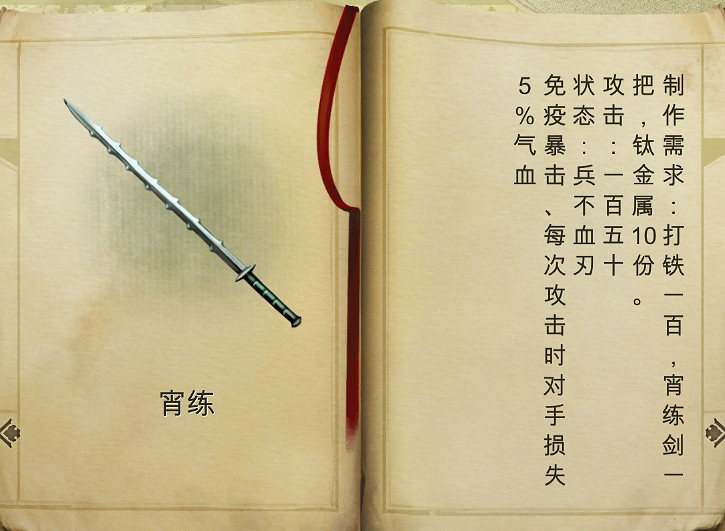 宵练
制作需求：打铁一百，宵练剑一
把，钛金属10份。
攻击：一百五十
状态：兵不血刃
免疫暴击、每次攻击时对手损失
5%气血